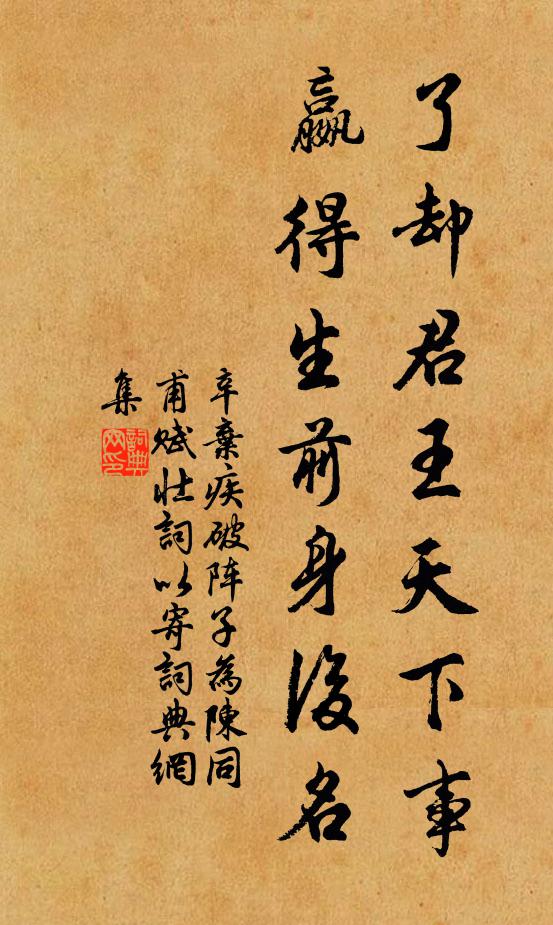 了却君王天下事
嬴得生前身後名
辛棄疾破阵子為陳同
甫赋壮詞以寄詞典網
集
詞典網印